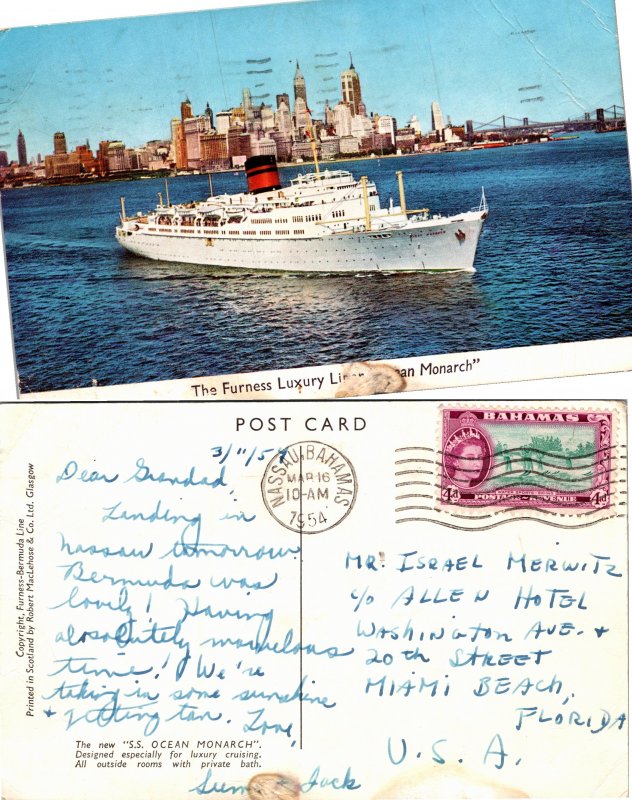 The Furness Luxury Lin an Monarch"
POST CARD
3/11/5
NASSAU, BAHAMAS
MAR 16
10-AM
1954
BAHAMAS
4d POSTAGE & REVENUE 4d
Dear Grandad,
Landing in
Nassau tomorrow
Bermuda was
lovely! Having
absolutely marvelous
time! We're
taking in some sunshine
+ getting tan. Love,
+ Jack
MR. ISRAEL MERWITZ
c/o ALLEN HOTEL
WASHINGTON AVE. +
20th STREET
MIAMI BEACH,
FLORIDA
U.S.A.
Copyright, Furness-Bermuda Line
Printed in Scotland by Robert MacLehose & Co. Ltd. Glasgow
The new "S.S. OCEAN MONARCH".
Designed especially for luxury cruising.
All outside rooms with private bath.